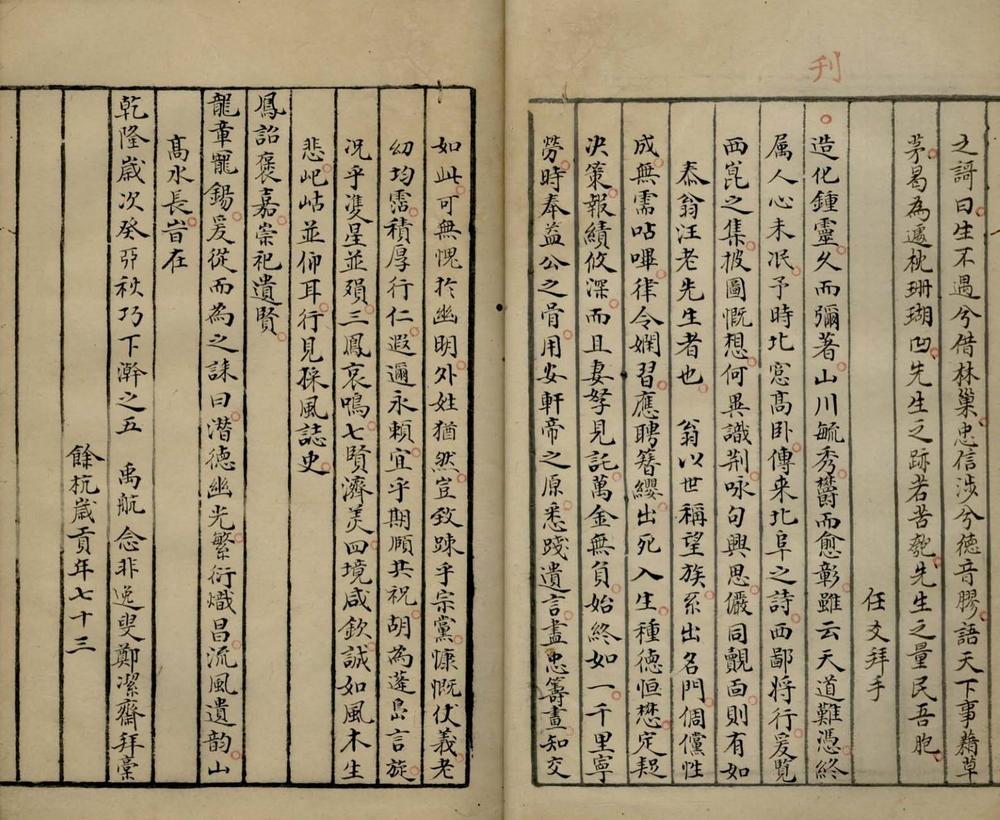 刋
之謌曰生不遇兮借林巢忠信涉兮德音膠語天下事藉草
茅曷為邃枕珊瑚凹先生之跡若苦匏先生之量民吾胞
任爻拜手
造化鍾靈久而彌著山川毓秀欝而愈彰雖云天道難憑終
属人心未泯予時北窓髙卧傳来北阜之詩西鄙将行爰覧
西崑之集披圖慨想何異識荆咏句興思儼同覿面則有如
泰翁汪老先生者也　翁以世稱望族系出名門倜儻性
成無需呫嗶律令嫻習應聘簪纓出死入生種德恒懋定起
决策報績攸深而且妻孥見託萬金無負始終如一千里寧
勞時奉益公之骨用安軒帝之原悉踐遺言盡忠籌畫知交
如此可無愧於幽明外姓猶然豈致踈乎宗黨慷慨仗義老
幼均霑積厚行仁遐邇永頼宜乎期頤共祝胡為蓬島言旋
况乎雙星並殞三鳳哀鳴七賢濟美四境咸欽誠如風木生
悲屺岵並仰耳行見採風誌史
鳳詔褒嘉崇祀遺賢
龍章寵錫爰從而為之誄曰潛德幽光繁衍熾昌流風遺韵山
髙水長旹在
乾隆歲次癸亞秋巧下澣之五　禹航念非逸叟鄭潔齋拜稾
餘杭歲貢年七十三